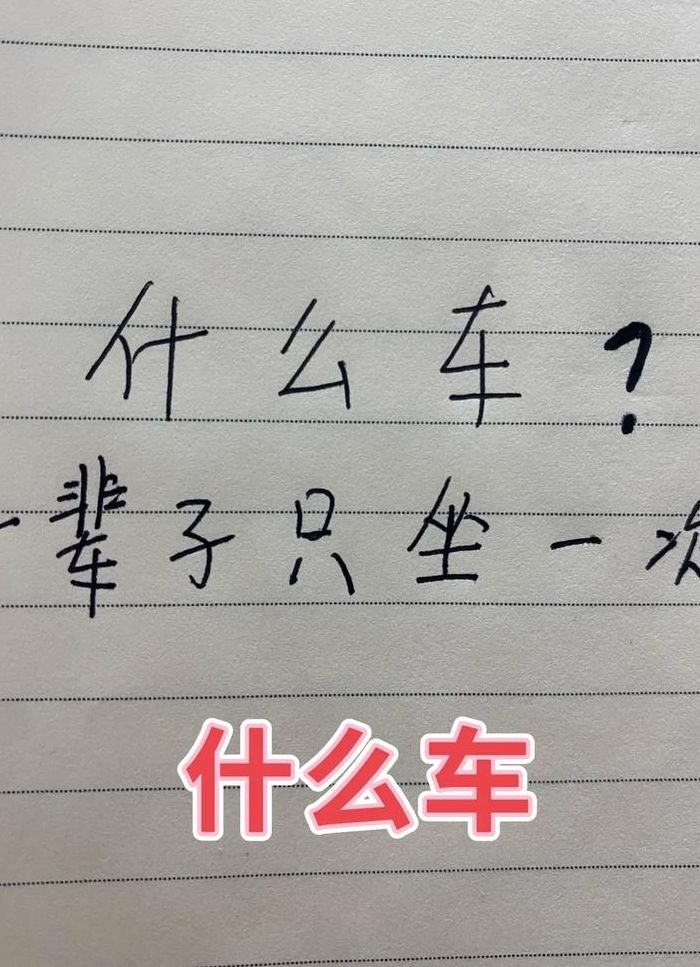 什么车?
一辈子只坐一次
什么车